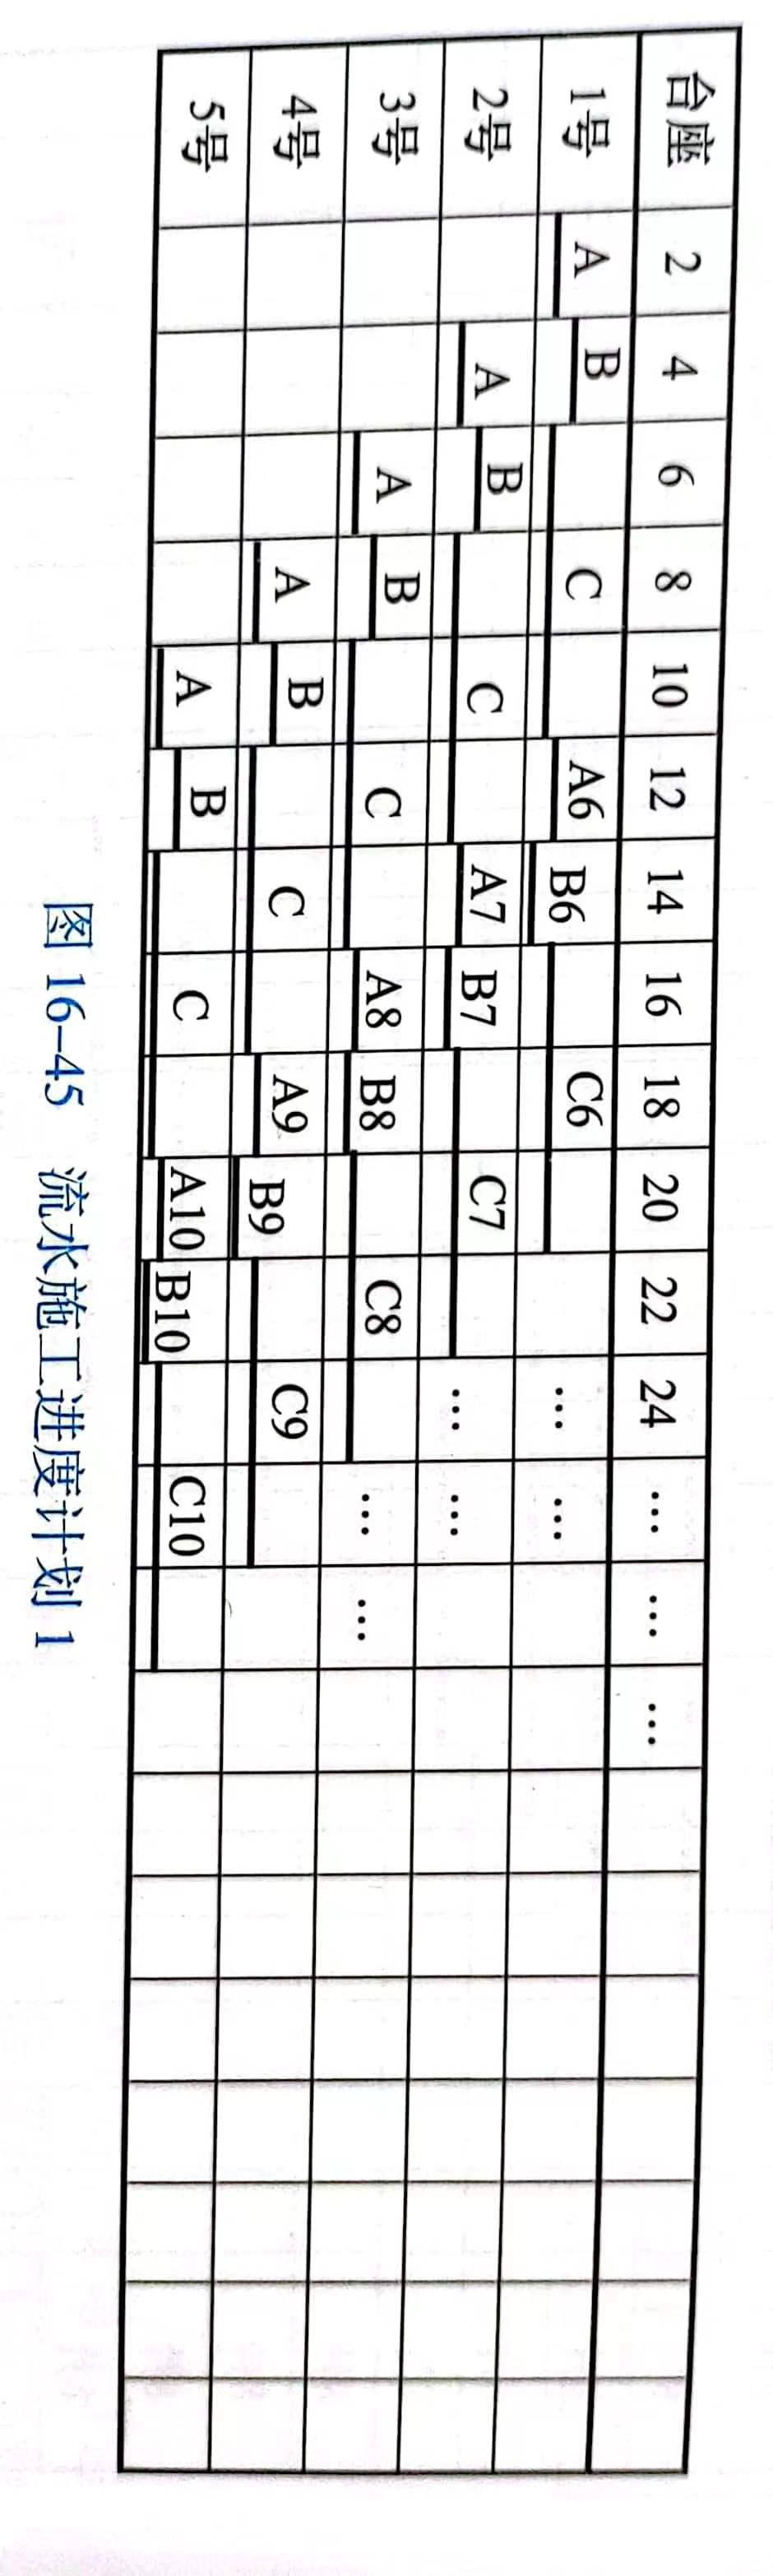 台座 2 4 6 8 10 12 14 16 18 20 22 24 … … …
1号 A B C A6 B6 C6 … …
2号 A B C A7 B7 C7 … …
3号 A B C A8 B8 C8 … …
4号 A B C A9 B9 C9
5号 A B C A10 B10 C10
图 16-45 流水施工进度计划 1